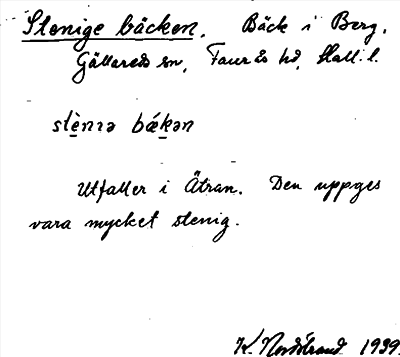 Stenige bäcken. Bäck i Berg,
Gällareds sn, Faurås hd, Hall. l.
stènɪə bǽkən
Utfaller i Ätran. Den uppges
vara mycket stenig.
K. Nordstrand 1939